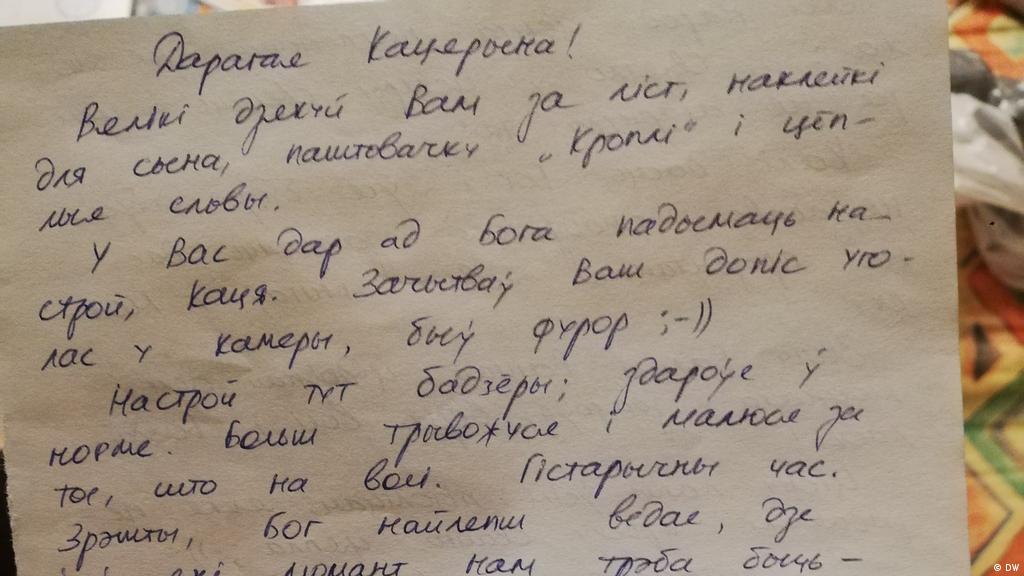 Дарагая Кацерына!
Вялікі дзякуй Вам за ліст, наклейкі
для сына, паштовачку „Кроплі“ і цёп-
лыя словы.
У Вас дар ад Бога падымаць на-
строй, Каця. Зачытваў Ваш допіс уго-
лас у камеры, быў фурор ;-))
Настрой тут бадзёры; здароўе ў
норме. Больш трывожуся і малюся за
тое, што на волі. Гістарычны час.
Зрэшты, Бог найлепш ведае, дзе
момант нам трэба быць-
© DW